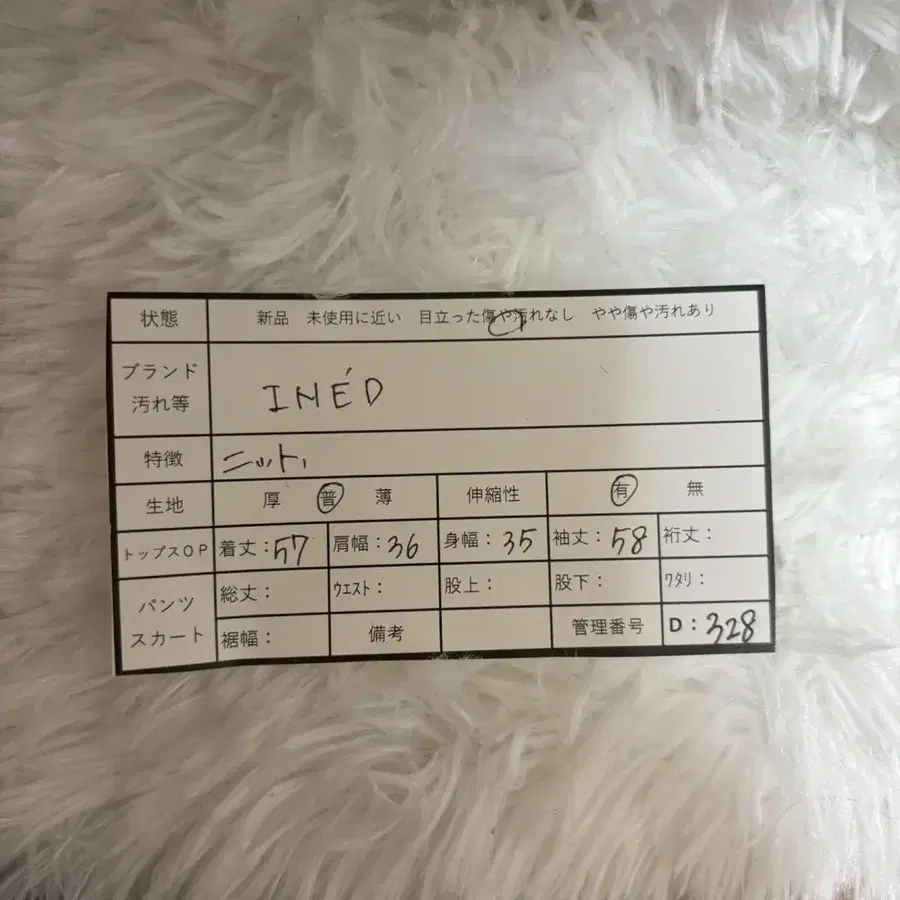 状態 新品 未使用に近い 目立った傷や汚れなし やや傷や汚れあり
ブランド
汚れ等
INÉD
特徴 ニット
生地 厚 普 薄 伸縮性 有 無
トップスOP 着丈:57 肩幅:36 身幅:35 袖丈:58 裄丈:
パンツ
スカート
総丈: ウエスト: 股上: 股下: ワタリ:
裾幅: 備考 管理番号 D:328